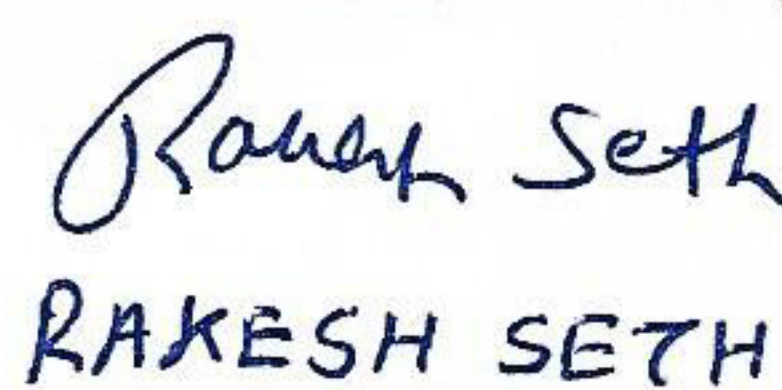 Rakesh Seth
RAKESH SETH